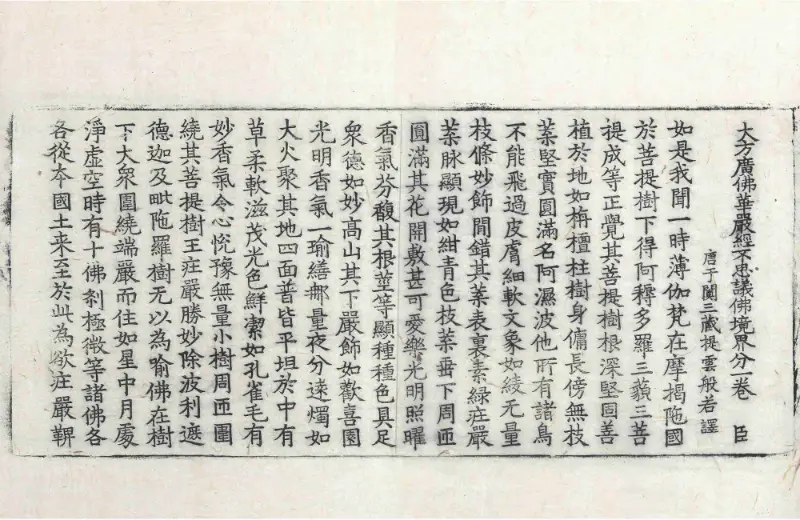 大方廣佛華嚴經不思議佛境界分一卷 臣
唐于闐三藏提雲般若譯
如是我聞一時薄伽梵在摩揭陁國
於菩提樹下得阿耨多羅三藐三菩
提成等正覺其菩提樹根深堅固善
植於地如栴檀柱樹身傭長傍無枝
葉堅實圓滿名阿濕波他所有諸鳥
不能飛過皮膚細軟文象如綾无量
枝條妙飾間錯其葉表裏素綠莊嚴
葉脉顯現如紺青色枝葉垂下周匝
圓滿其花開敷甚可愛樂光明照曜
香氣芬馥其根莖等顯種種色具足
衆德如妙高山其下嚴飾如歡喜園
光明香氣一瑜繕那量夜分遠燭如
大火聚其地四面普皆平坦於中有
草柔軟滋茂光色鮮潔如孔雀毛有
妙香氣令心悅豫無量小樹周匝圍
繞其菩提樹王莊嚴勝妙除波利遮
德迦及毗陁羅樹无以為喻佛在樹
下大衆圍繞端嚴而住如星中月處
淨虛空時有十佛剎極微等諸佛各
各從本國土来至於此為欲莊嚴鞞